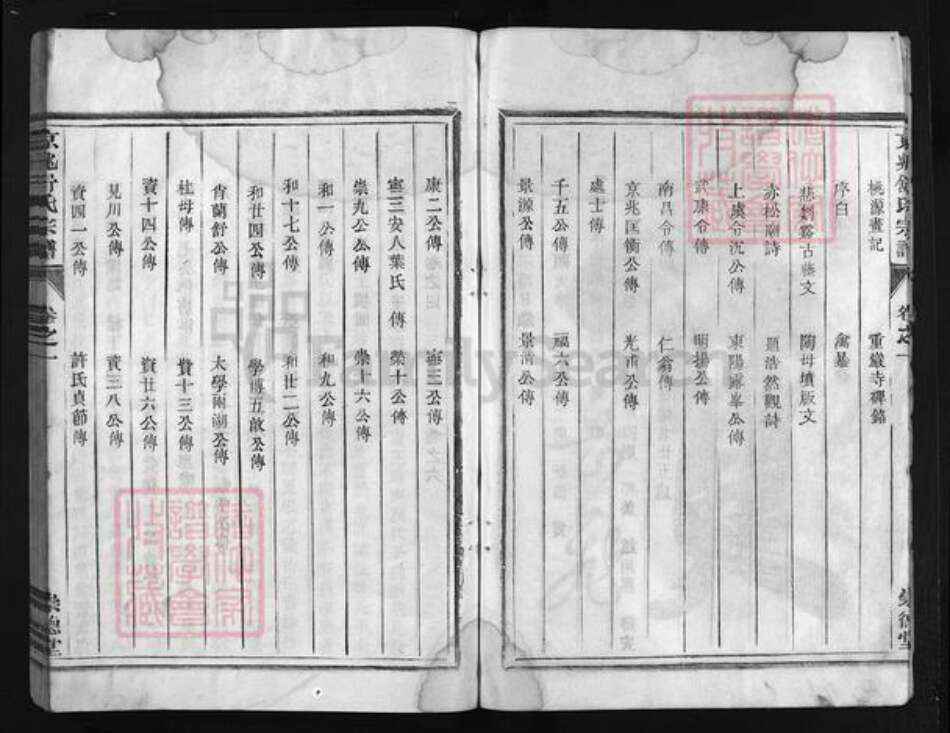 桃源畫記 重巖寺碑銘
序白 禽墓
悲蚓谿古藤文 陶母墳版文
赤松廟詩 題浩然觀詩
上虞令沉公傳 東陽靡峯公傳
武康令傳 明揚公傳
南昌令傳 仁翁傳
京兆匡衡公傳 光甫公傳
處士傳
千五公傳 福六公傳
景源公傳 景清公傳
康二公傳 寧三公傳
寧三安人葉氏傳 榮十公傳
崇九公公傳 崇十六公傳
和一公傳 和九公傳
和十七公傳 和廿二公傳
和廿四公傳 學博五啟公傳
肯蘭舒公傳 太學兩湖公傳
桂母傳 貲十三公傳
資十四公傳 資廿六公傳
見川公傳 資三八公傳
資四一公傳 許氏貞節傳
宗譜
卷之一
榮德堂
FamilySearch